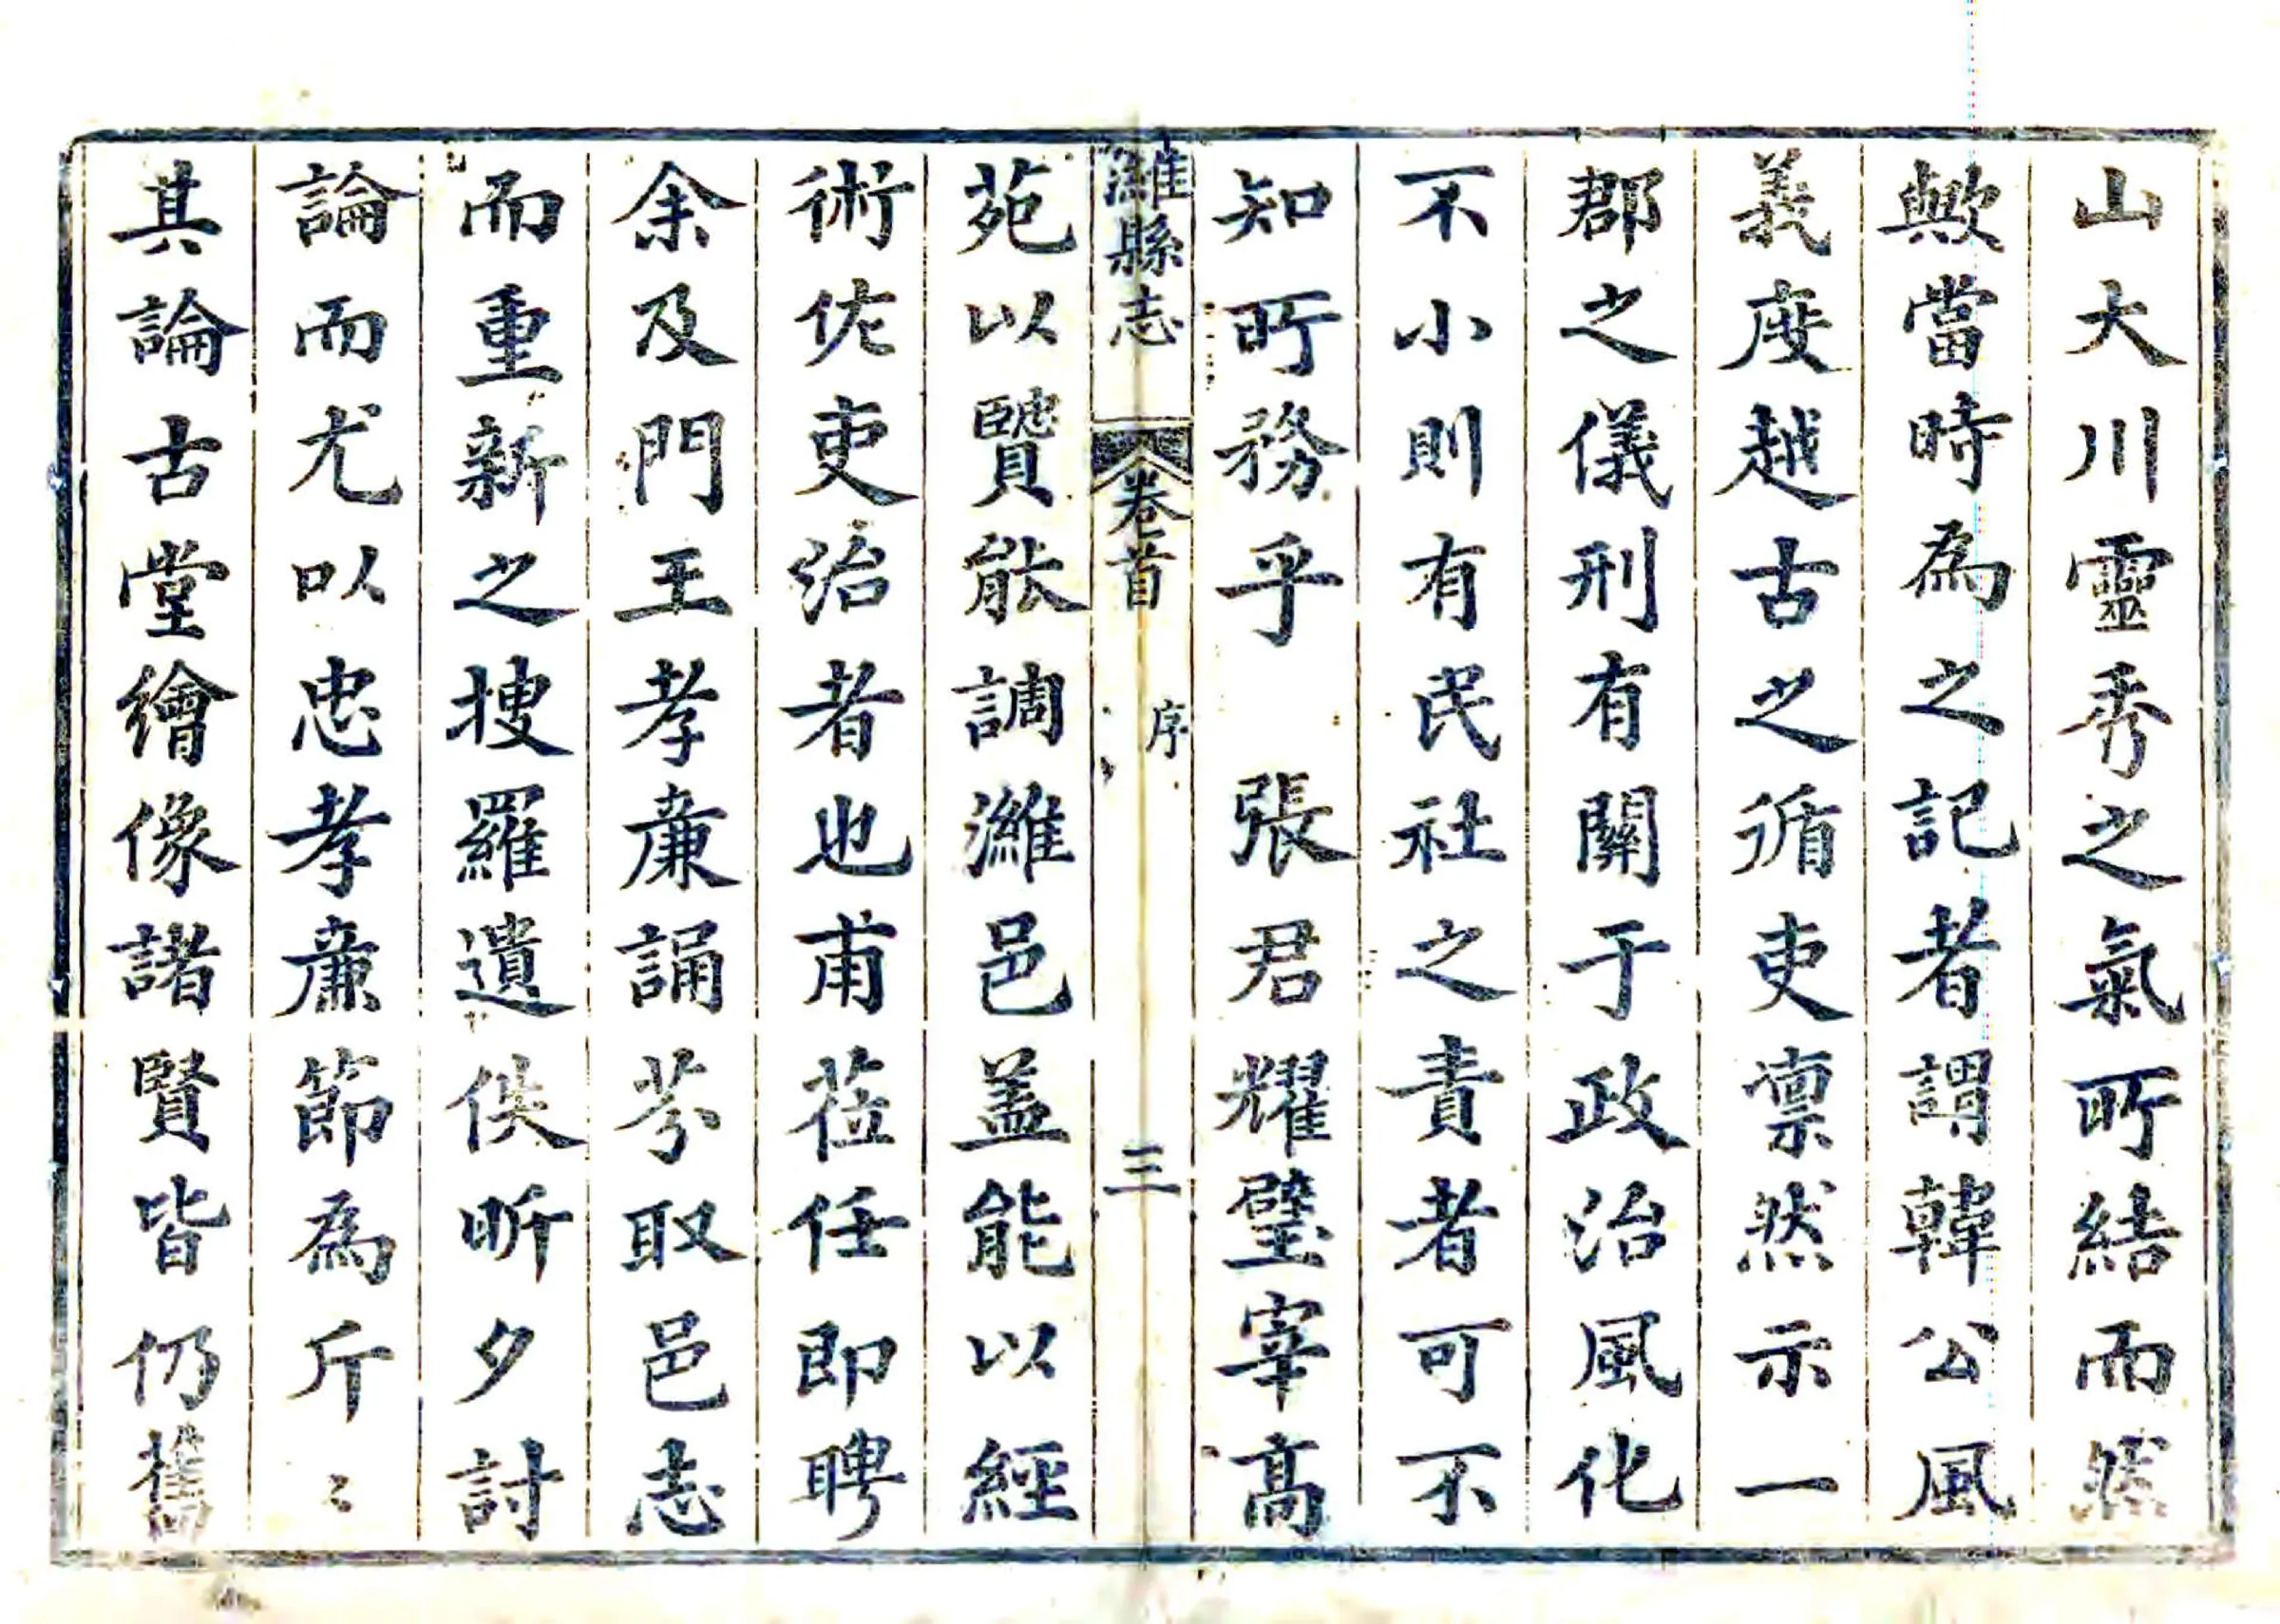 山大川靈秀之氣所結而然
歟當時為之記者謂韓公風
義度越古之循吏凛然示一
郡之儀刑有關于政治風化
不小則有民社之責者可不
知所務乎　張君耀璧宰高
濰縣志
卷首
序
三
苑以賢能調濰邑盖能以經
術佐吏治者也甫蒞任即聘
余及門王孝亷誦芬取邑志
而重新之搜羅遺佚昕夕討
論而尤以忠孝亷節為斤〻
其論古堂繪像諸賢皆仍舊